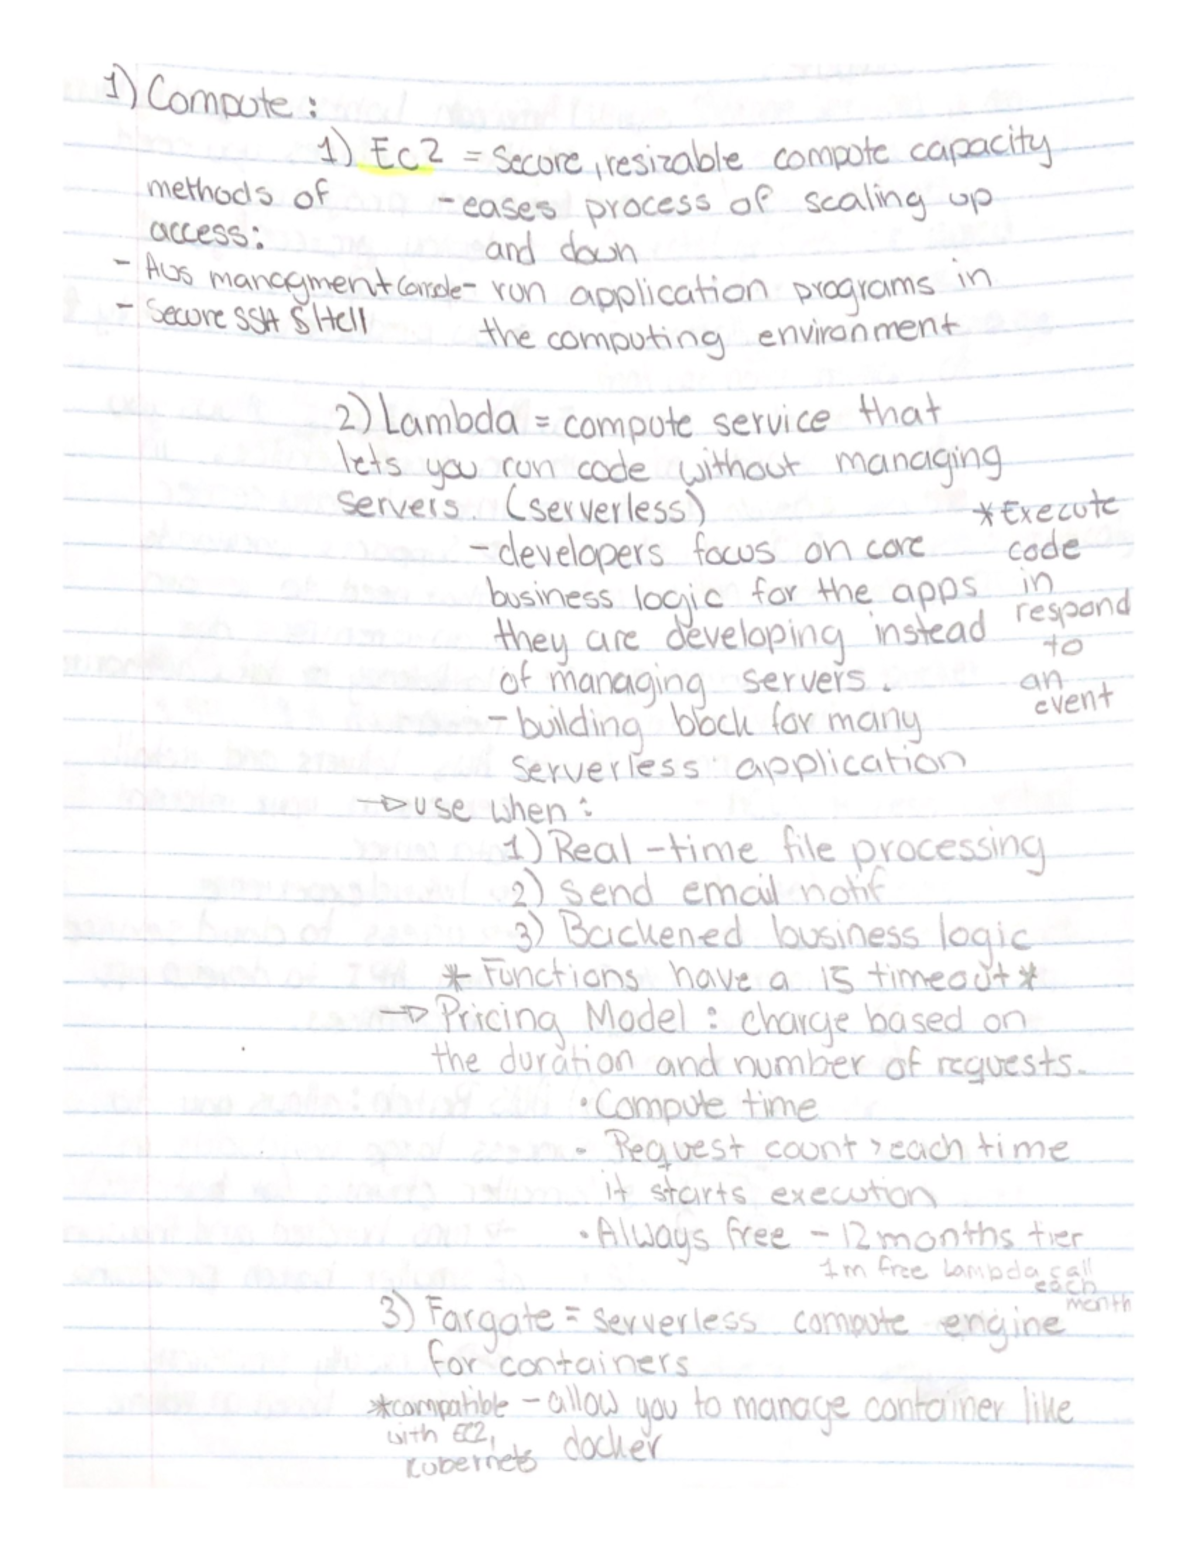 1) Compute:
1) Ec2 = Secure, resizable compute capacity
methods of
access:
- Aws managment Console
- Secure SSH SHell
- eases process of scaling up
and down
- run application programs in
the computing environment
2) Lambda = compute service that
lets you run code without managing
servers. (serverless)
- developers focus on core
business logic for the apps
they are developing instead
of managing servers.
*Execute
code
in
respond
to
an
event
- building block for many
serverless application
→ use when:
1) Real-time file processing
2) Send email notif
3) Backened business logic
* Functions have a 15 timeout *
→ Pricing Model: charge based on
the duration and number of requests.
• Compute time
• Request count > each time
it starts execution
• Always free - 12 months tier
1m free Lambda call
each
month
3) Fargate = Serverless compute engine
for containers
*compatible
with EC2,
Kubernets
- allow you to manage container like
docker